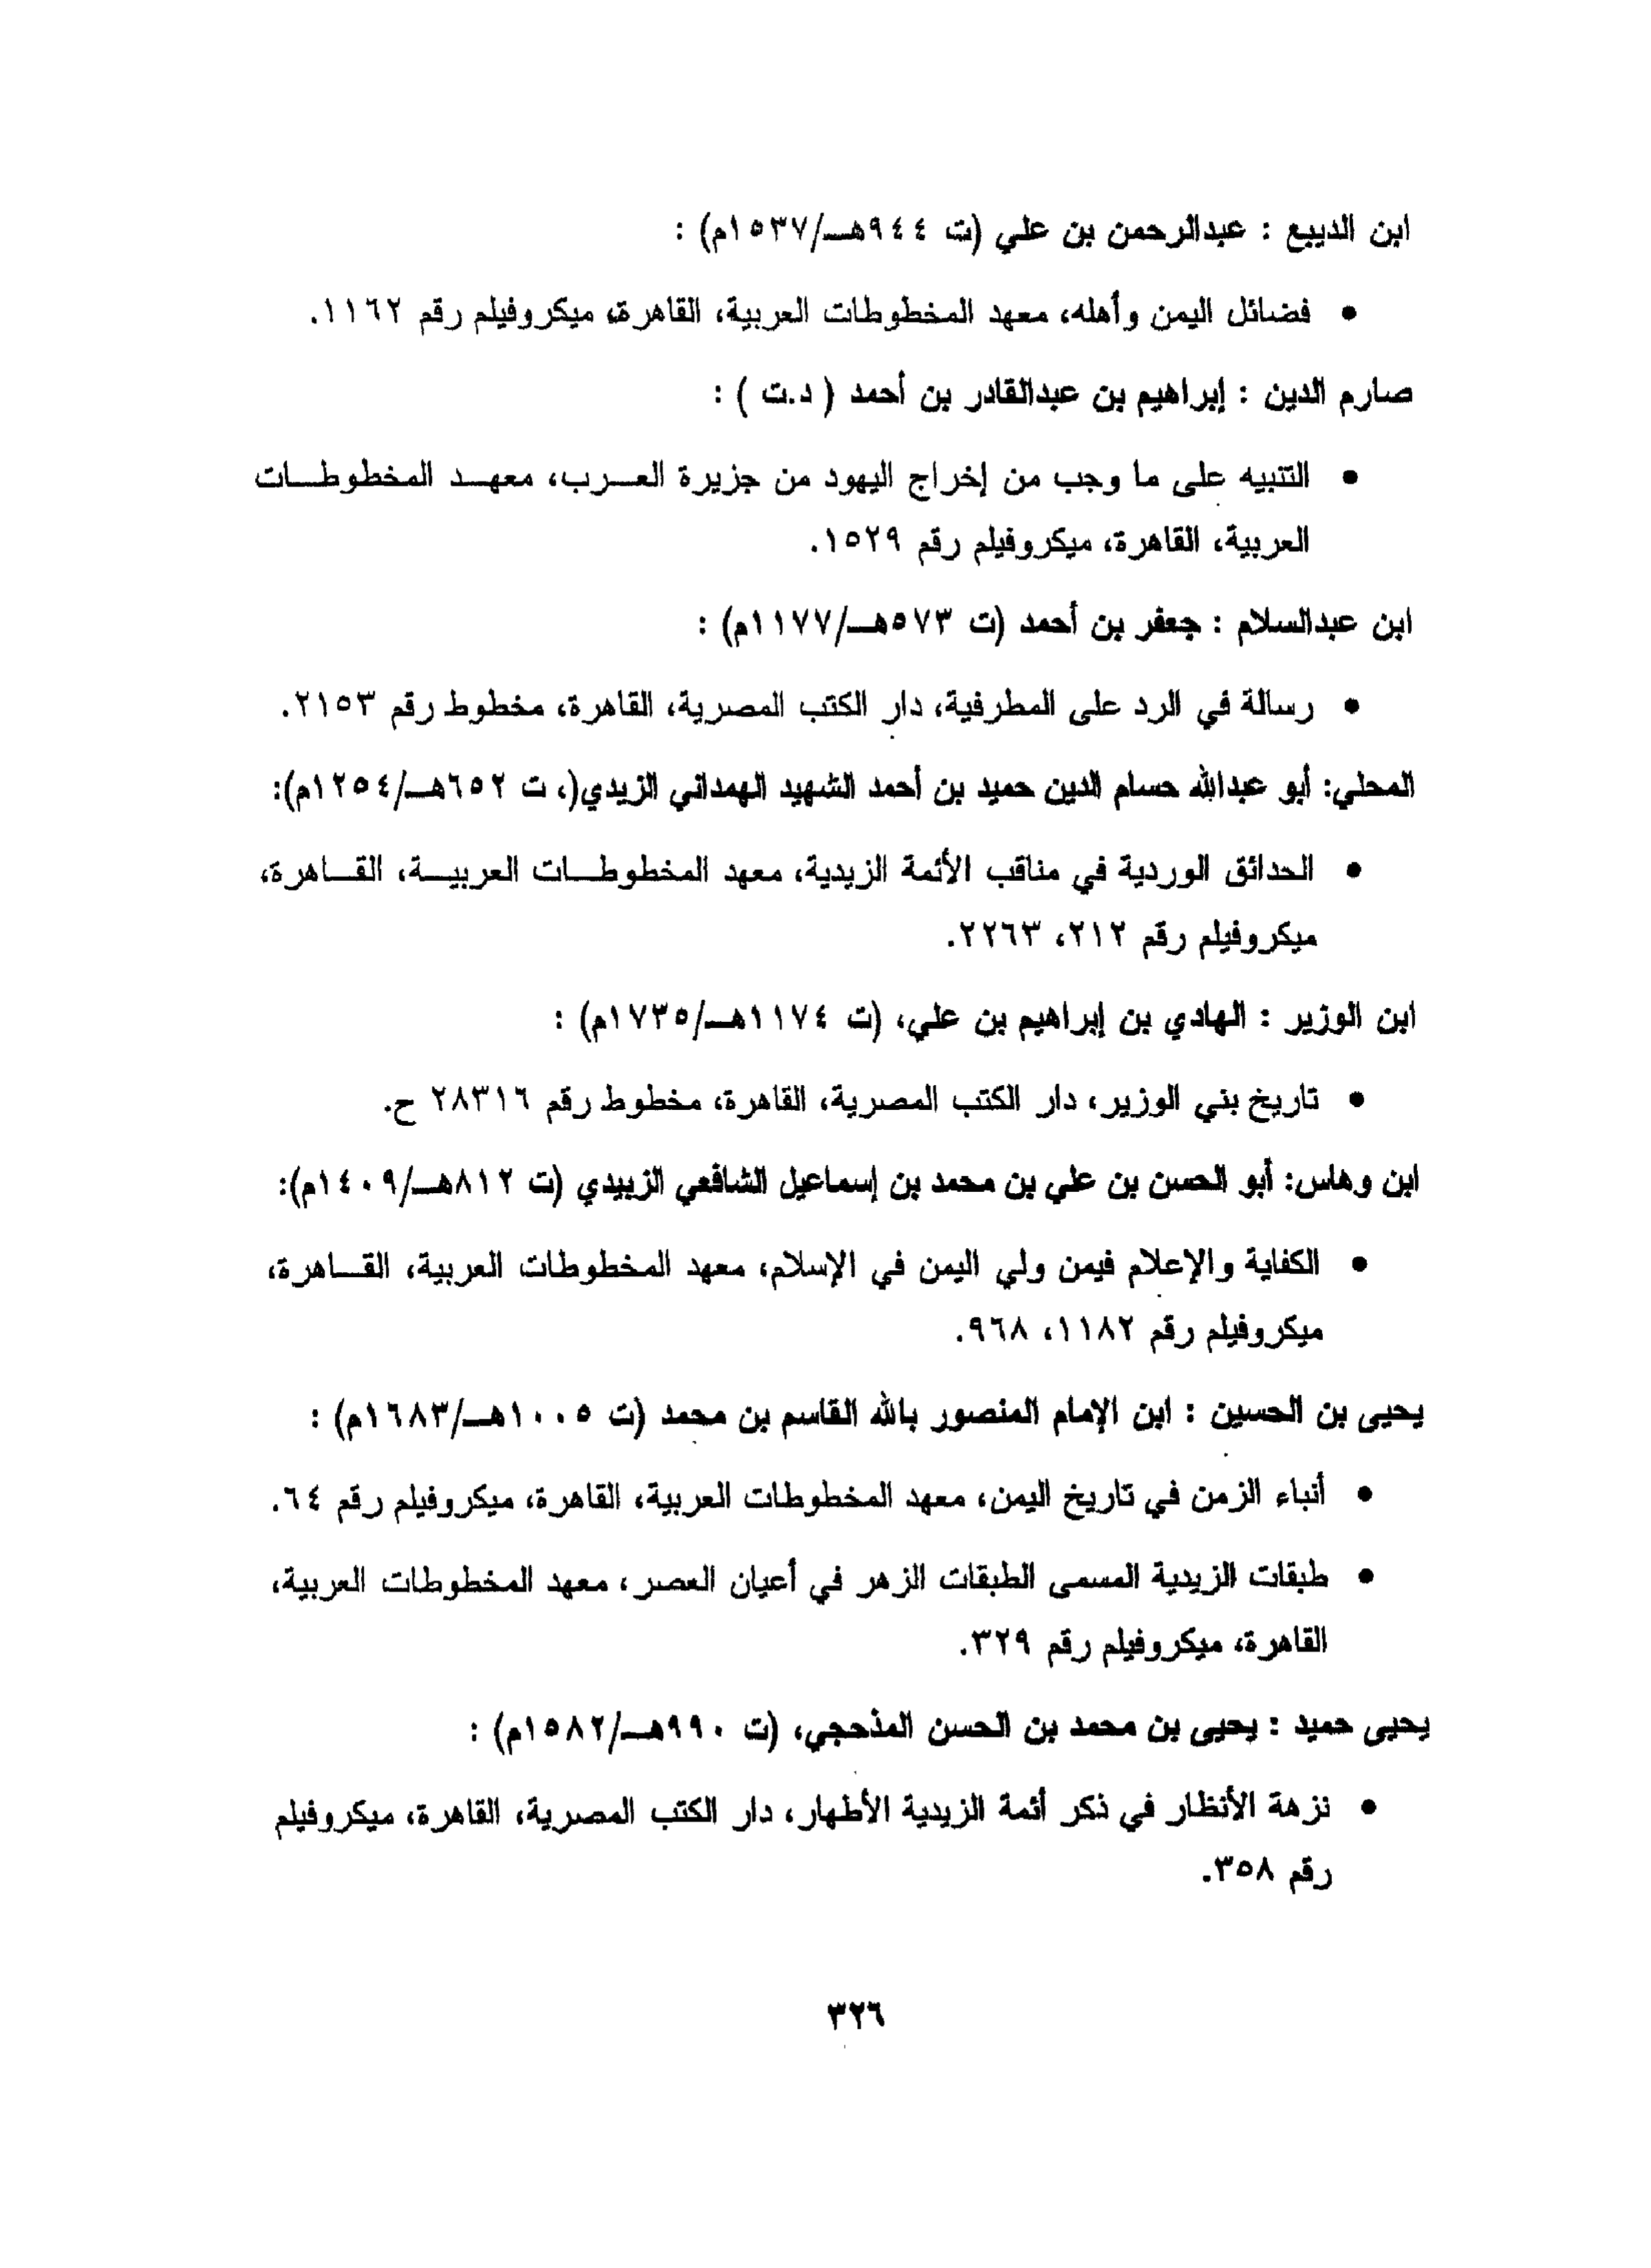 ابن الديبع : عبدالرحمن بن علي (ت ٩٤٤هـ/١٥٣٧م) :
• فضائل اليمن وأهله، معهد المخطوطات العربية، القاهرة، ميكروفيلم رقم ١١٦٢.
صارم الدين : إبراهيم بن عبدالقادر بن أحمد ( د.ت ) :
• التنبيه على ما وجب من إخراج اليهود من جزيرة العرب، معهد المخطوطات
العربية، القاهرة، ميكروفيلم رقم ١٥٢٩.
ابن عبدالسلام : جعفر بن أحمد (ت ٥٧٣هـ/١١٧٧م) :
• رسالة في الرد على المطرفية، دار الكتب المصرية، القاهرة، مخطوط رقم ٢١٥٣.
المحلي: أبو عبدالله حسام الدين حميد بن أحمد الشهيد الهمداني الزيدي(، ت ٦٥٢هـ/١٢٥٤م):
• الحدائق الوردية في مناقب الأئمة الزيدية، معهد المخطوطات العربية، القاهرة،
ميكروفيلم رقم ٢١٢، ٢٢٦٣.
ابن الوزير : الهادي بن إبراهيم بن علي، (ت ١١٧٤هـ/١٧٣٥م) :
• تاريخ بني الوزير، دار الكتب المصرية، القاهرة، مخطوط رقم ٢٨٣١٦ ح.
ابن وهاس: أبو الحسن بن علي بن محمد بن إسماعيل الشافعي الزبيدي (ت ٨١٢هـ/١٤٠٩م):
• الكفاية والإعلام فيمن ولي اليمن في الإسلام، معهد المخطوطات العربية، القاهرة،
ميكروفيلم رقم ١١٨٢، ٩٦٨.
يحيى بن الحسين : ابن الإمام المنصور بالله القاسم بن محمد (ت ١٠٠٥هـ/١٦٨٣م) :
• أنباء الزمن في تاريخ اليمن، معهد المخطوطات العربية، القاهرة، ميكروفيلم رقم ٦٤.
• طبقات الزيدية المسمى الطبقات الزهر في أعيان العصر، معهد المخطوطات العربية،
القاهرة، ميكروفيلم رقم ٣٢٩.
يحيى حميد : يحيى بن محمد بن الحسن المذحجي، (ت ٩٩٠هـ/١٥٨٢م) :
• نزهة الأنظار في ذكر أئمة الزيدية الأطهار، دار الكتب المصرية، القاهرة، ميكروفيلم
رقم ٣٥٨.
٣٢٦